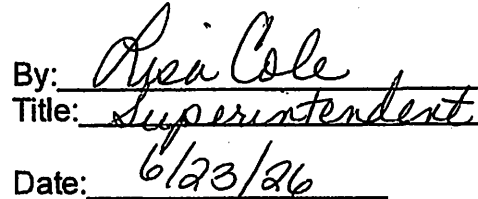 By: Lisa Cole
Title: Superintendent
Date: 6/23/26